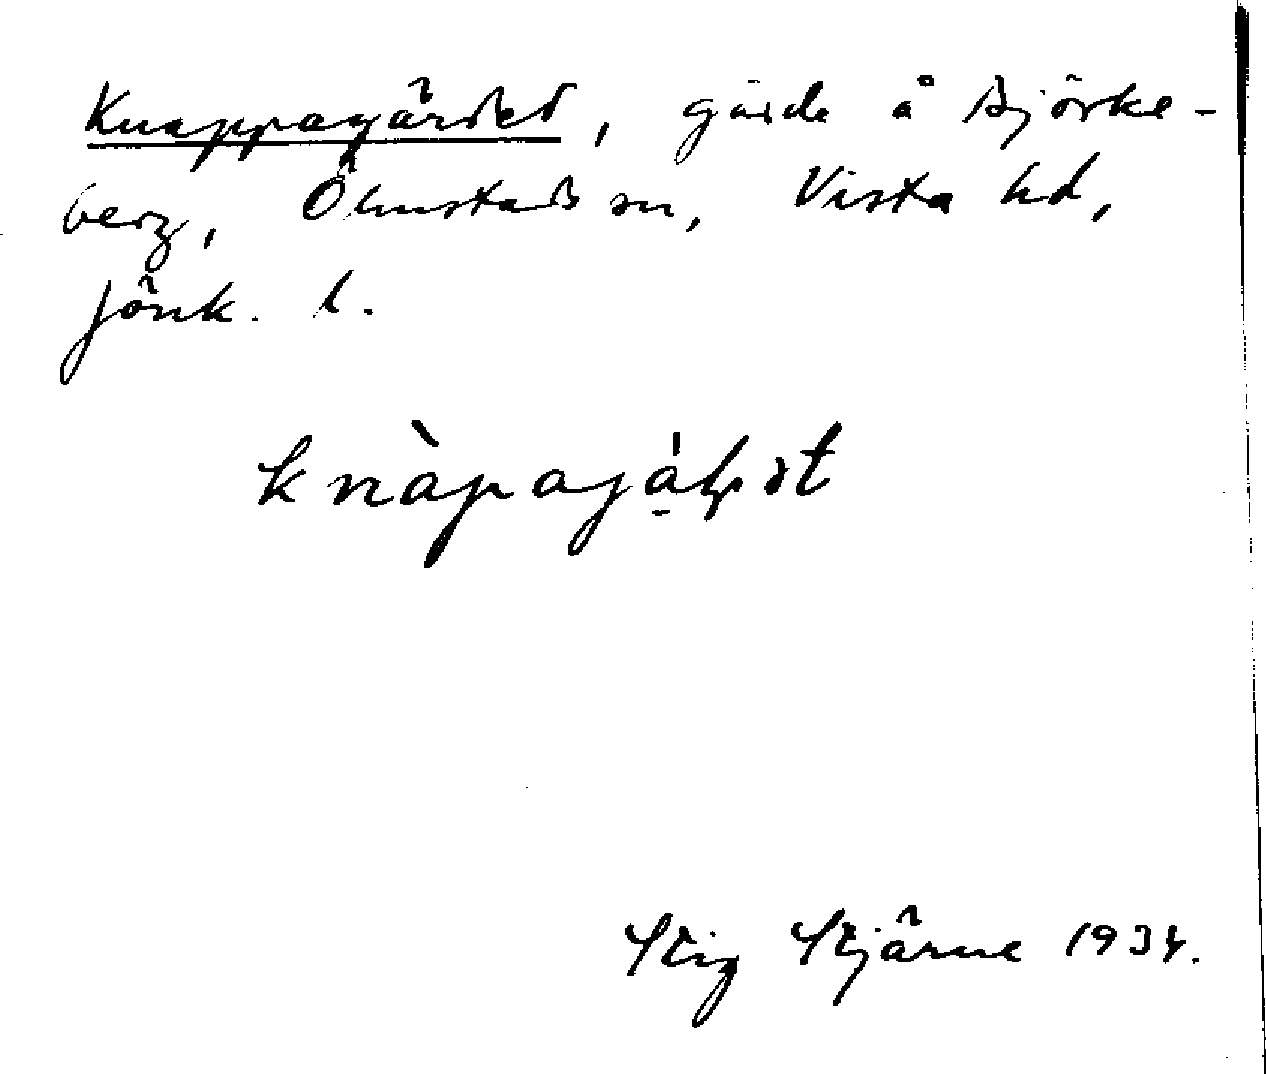 Knappagärdet, gärde å Björke-
berg, Ölmstads sn, Vista hd,
Jönk. l.
knàpajáḷət
Stig Stjärne 1934.